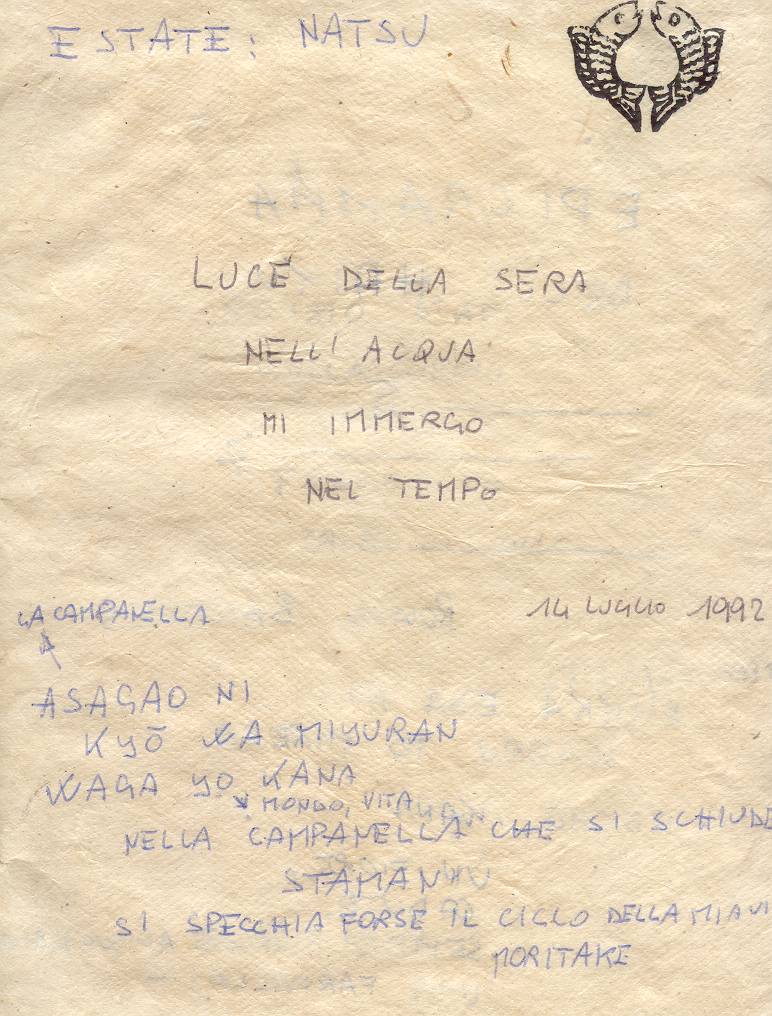 ESTATE: NATSU
LUCE DELLA SERA
NELL' ACQUA
MI IMMERGO
NEL TEMPO
14 LUGLIO 1992
LA CAMPANELLA
ASAGAO NI
KYŌ WA MIYURAN
WAGA YO KANA
MONDO, VITA
NELLA CAMPANELLA CHE SI SCHIUDE
STAMANI
SI SPECCHIA FORSE IL CICLO DELLA MIA VI
MORITAKE